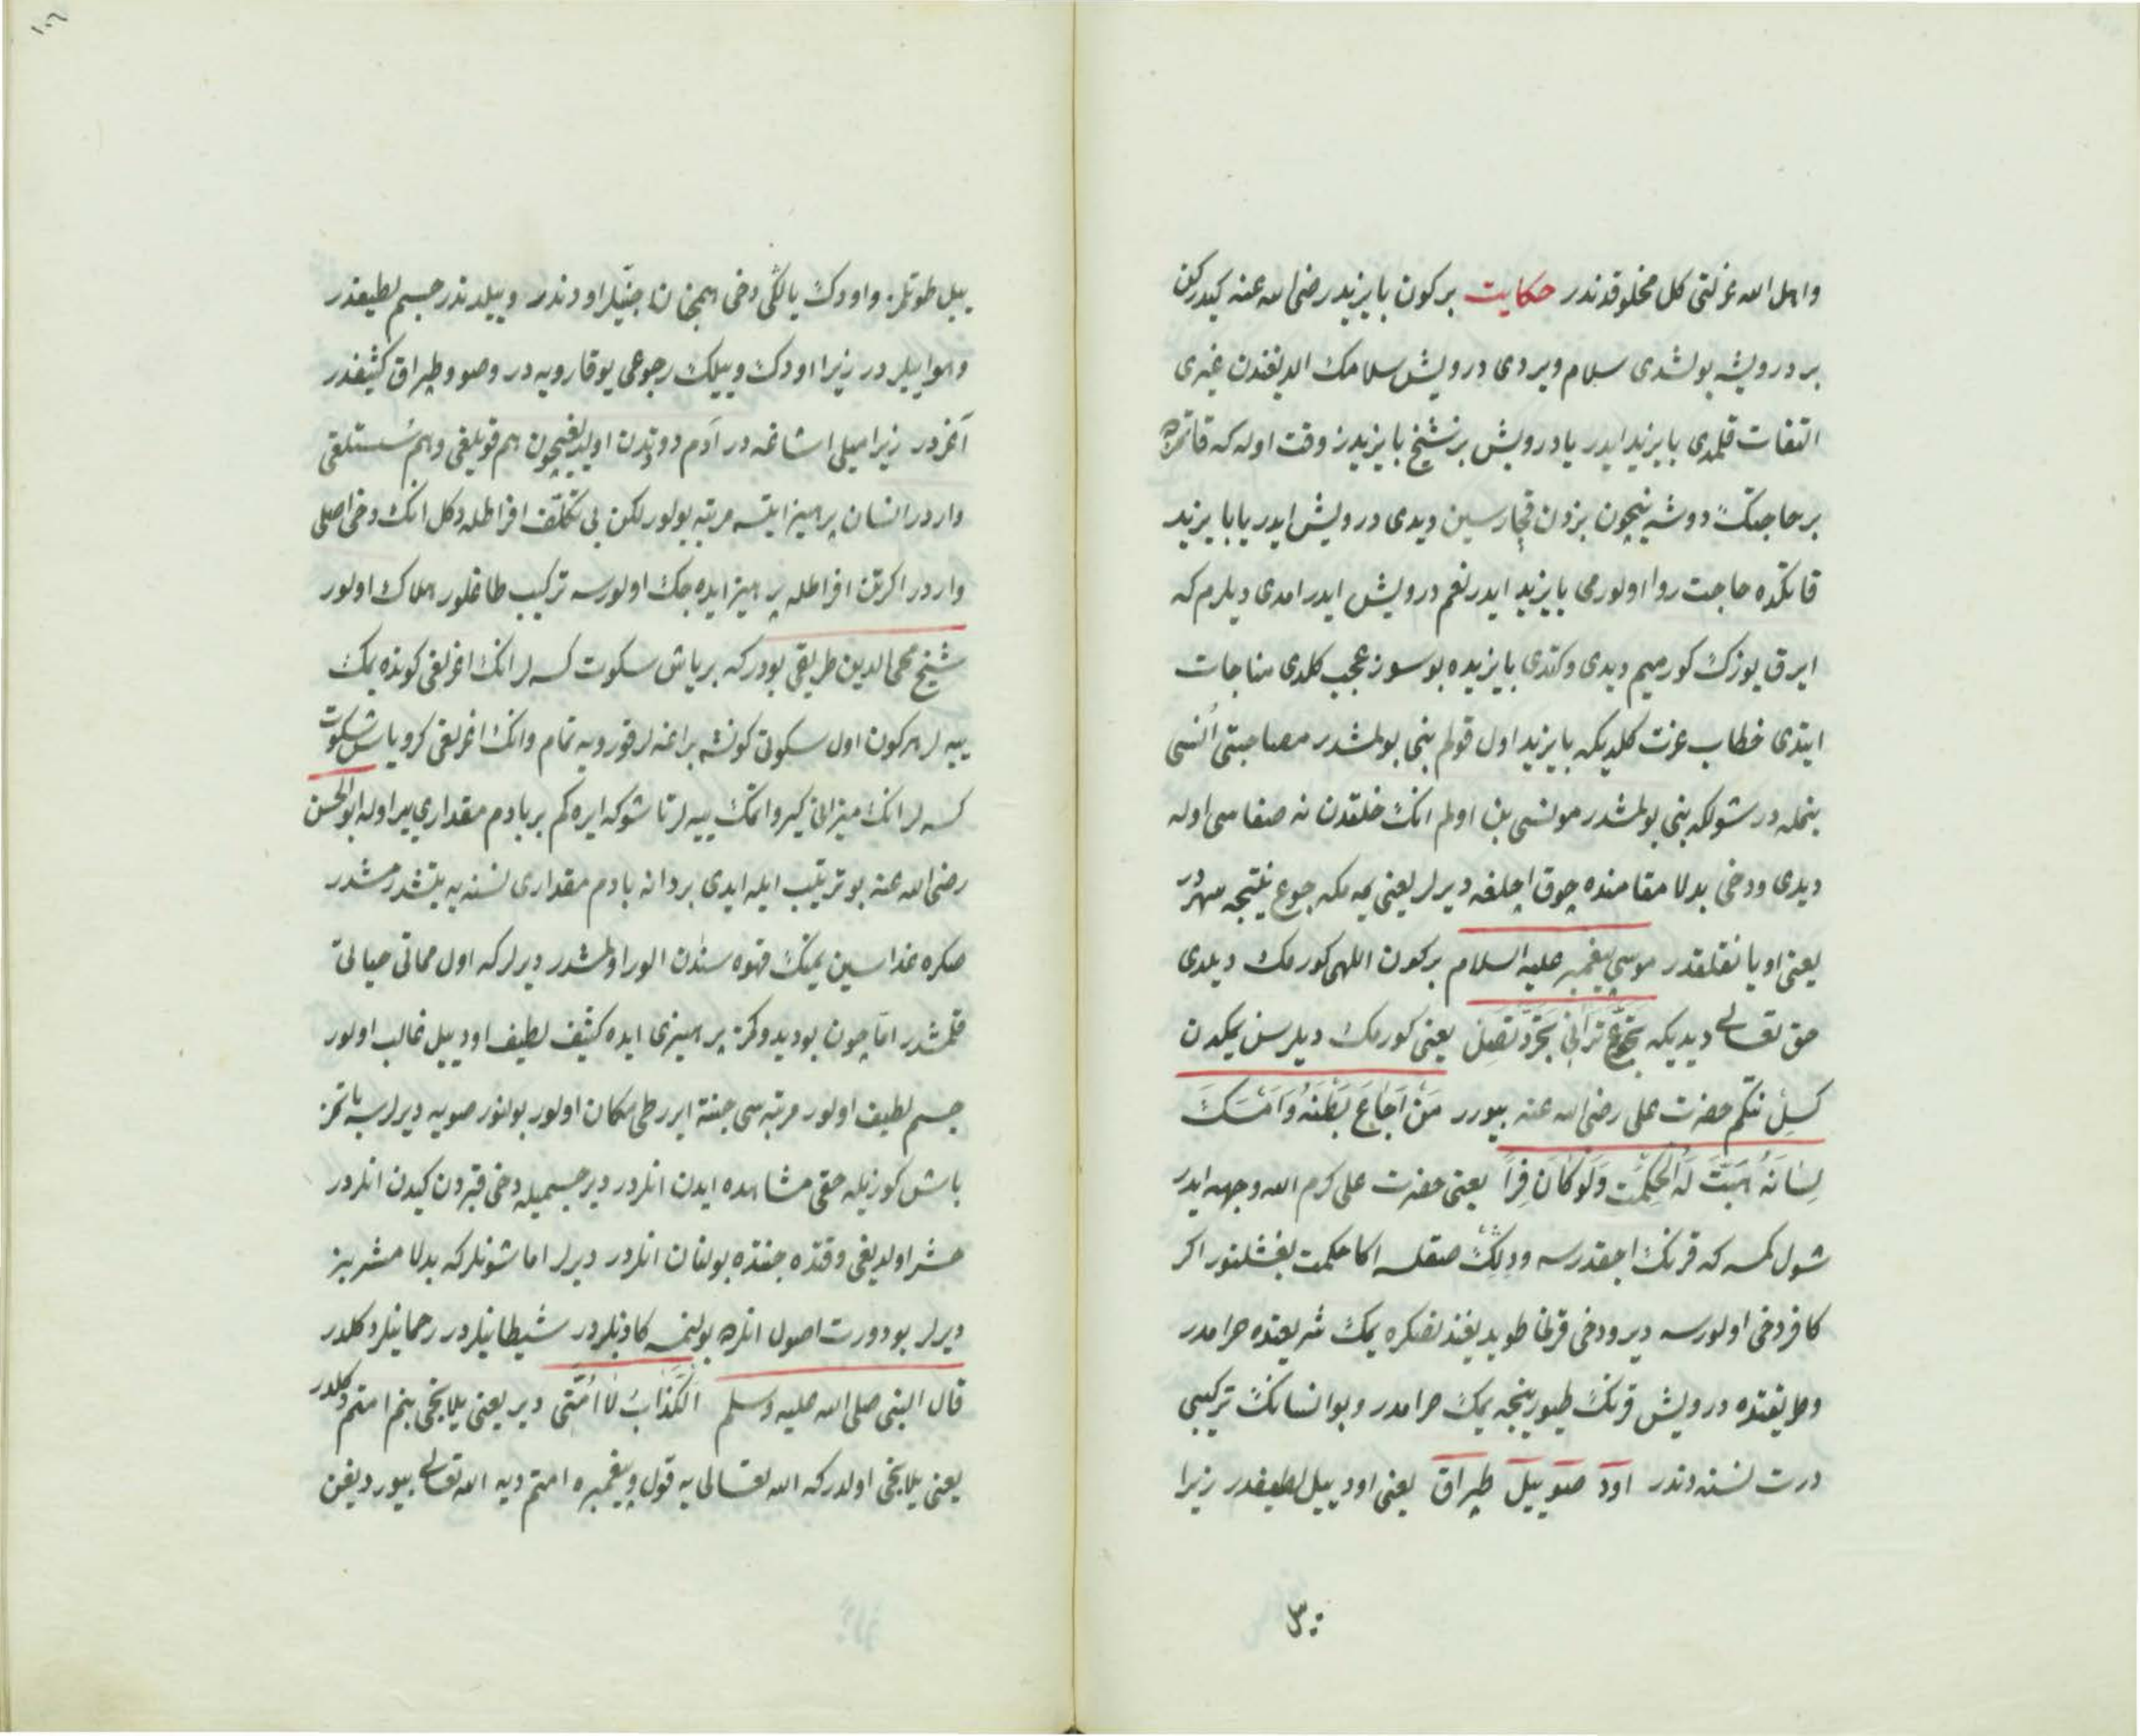 واهل الله عزلتی کل مخلوقدندر حکایت برکون بایزید رضی الله عنه کیدرکن
بر درویشه بولشدی سلام ویردی درویش سلامک الدیغندن غیری
التفات قلمدی بایزید ایدر یا درویش بز شیخ بایزیدز وقت اوله که قاتمزه
بر حاجتک دوشه نیچون بزدن قچارسین دیدی درویش ایدر یا بایزید
قاتکده حاجت روا اولورمی بایزید ایدر نعم درویش ایدر امدی دیلرم که
ایرق یوزک کورمیم دیدی وکتدی بایزیده بو سوز عجب کلدی مناجات
ایتدی خطاب عزت کلدیکه بایزید اول قولم بنی بولمشدر مصاحبتی انسی
بنمله در شولکه بنی بولمشدر مونسی بن اولم انک خلقدن نه صفاسی اوله
دیدی ودخی بدلا مقامنده چوق اچلغه دیرلر یعنی یمه مکه جوع نیتجه سهردر
یعنی اویانقلقدر موسی پیغمبر علیه السلام برکون اللهی کورمک دیلدی
حق تعالی دیدیکه تجوع ترانی تجرد تصل یعنی کورمک دیلرسن یمکدن
کسل نتکم حضرت علی رضی الله عنه بیورر من اجاع بطنه وامسک
لسانه هبت له الحکمت ولو کان فرا یعنی حضرت علی کرم الله وجهه ایدر
شول کمسه که قرنک اجقدرسه ودلک صقلسه اکا حکمت بغشلنور اکر
کافر دخی اولورسه دیر ودخی قرنا طویدیغندنصکره یمک شریعتده حرامدر
وطریقتده درویش قرنک طیورینجه یمک حرامدر وبو انسانک ترکیبی
درت نسنه دندر اود صو ییل طپراق یعنی اود ییل لطیفدر زیرا
ییل
ییل طوتلمز واودک یالکی دخی همچنان جنیلر اوددندر وییلدندر جسم لطیفدر
وهوا ییلر در زیرا اودک وییلک رجوعی یوقارویه در وصو وطپراق کثیفدر
آغردر زیرا میلی اشاغه در آدم دورتدن اولدیغیچون هم قویلغی وهم سستلقی
واردر انسان پرهیز ایتسه مرتبه بولور لکن بی تکلف افراطله دکل انک دخی اصلی
واردر اکر تن افراطله پرهیز ایده جک اولورسه ترکیب طاغلور هلاک اولور
شیخ محی الدین طریقی بودرکه بر یاش سکوت کسه لر انک اغرلغی کونده یمک
ییه لر هرکون اول سکوتی کونشه براغه لر قورویه تمام وانک اغرلغی کرو یاش سکوت
کسه لر انک میزانی کیرو اتمک ییه لر تا شوکه ایره کم بر بادم مقداری یر اوله ابو الحسن
رضی الله عنه بو ترتیب ایله ایدی بر دانه بادم مقداری نسنه یه یتشدرمشدر
صکره غذاسین یمنک قهوه سندن الور اولمشدر دیرلرکه اول مماتی حیاتی
قلمشدر اما چون بودیدوکمز پرهیزی ایده کثیف لطیف اود ییل غالب اولور
جسم لطیف اولور مرتبه سی جنته ایرر طی مکان اولور بولنور صویه دیرلرسه باتمز
باش کوزیله حقی مشاهده ایدن انلردر دیر جسمیله دخی قبردن کیدن انلردر
حشر اولدیغی وقتده جنتده بولنان انلردر دیرلر اما شونلرکه بدلا مشربیز
دیرلر بو دورت اصول انلرده بولنمسه کاذبلردر شیطانیلردر رحمانیلر دکلدر
قال النبی صلی الله علیه وسلم الکذاب لا امتی دیر یعنی یلانجی بنم امتم دکلدر
یعنی یلانجی اولدرکه الله تعالی یه قول وپیغمبره امتم دیه الله تعالی بیوردیغن